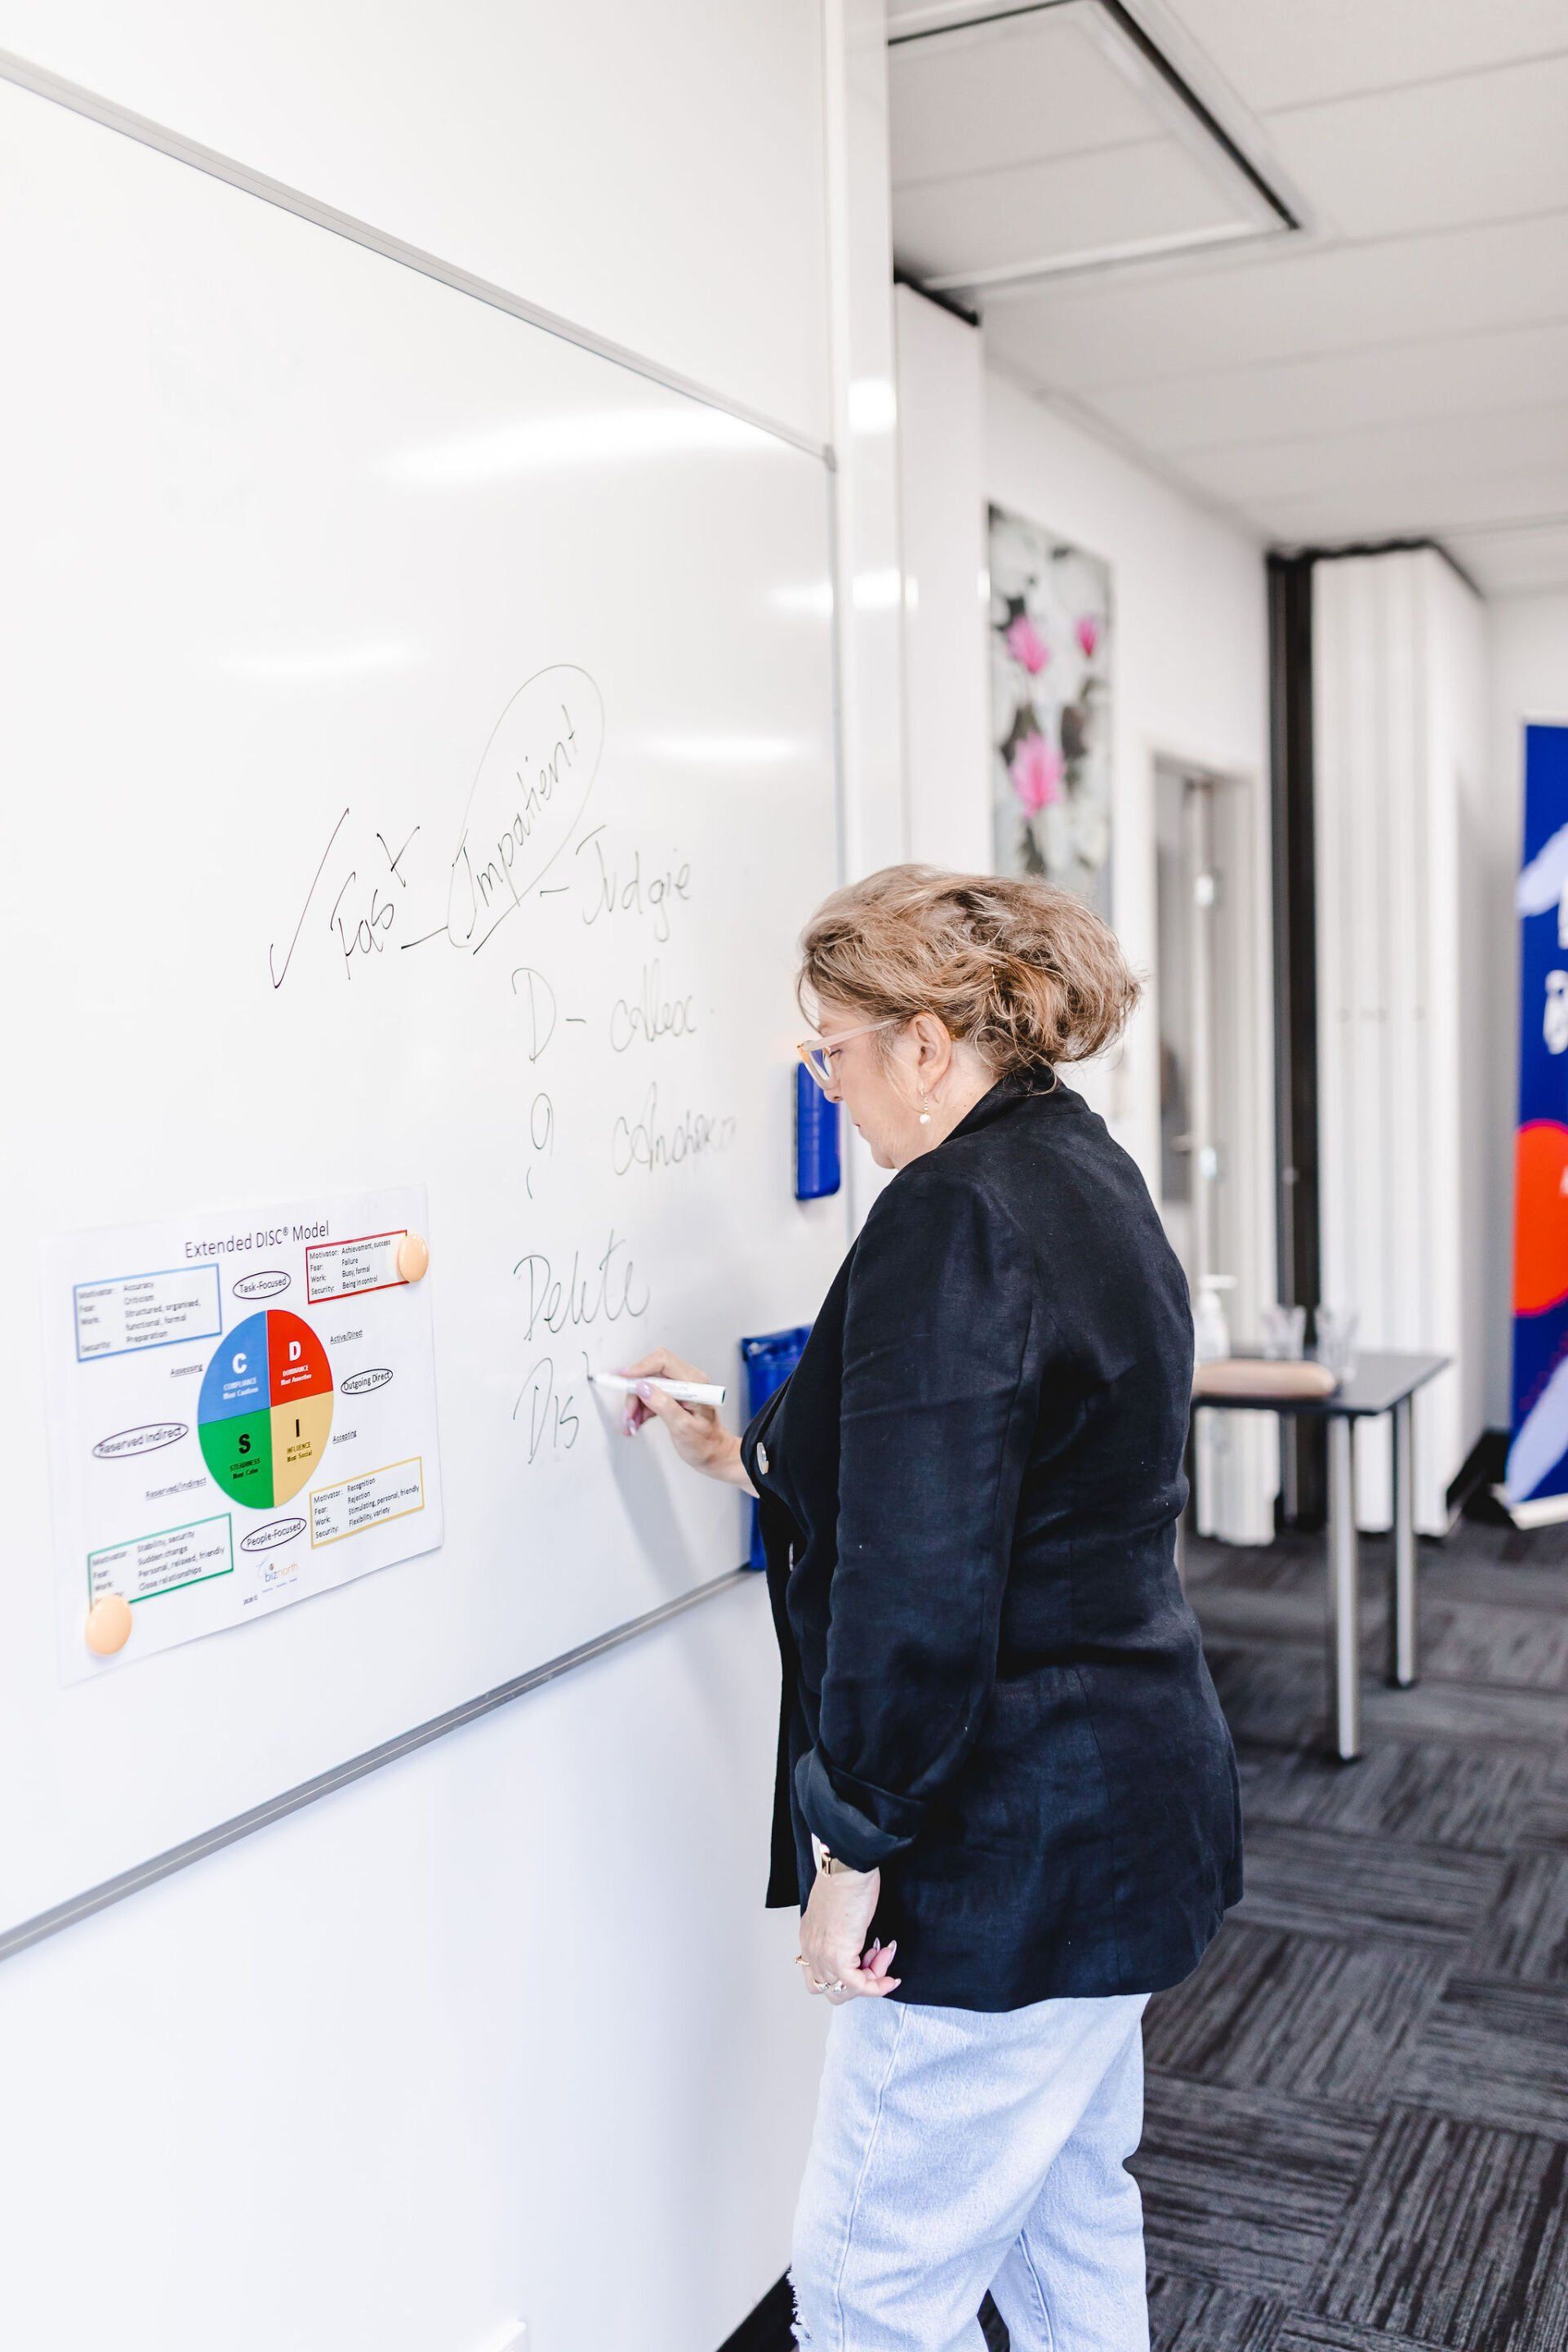 Fast - Impatient
- Judgie
D -
Delete
Dis
Extended DISC® Model
Motivator: Accuracy
Fear: Criticism
Work: Structured, organised,
functional, formal
Security: Preparation
Task-Focused
Motivator: Achievement, success
Fear: Failure
Work: Busy, formal
Security: Being in control
Assessing
Active/Direct
C
COMPLIANCE
Most Cautious
D
DOMINANCE
Most Assertive
Outgoing Direct
Reserved Indirect
S
STEADINESS
Most Calm
I
INFLUENCE
Most Social
Accepting
Reserved/Indirect
People-Focused
Motivator: Recognition
Fear: Rejection
Work: Stimulating, personal, friendly
Security: Flexibility, variety
Motivator: Stability, security
Fear: Sudden change
Work: Personal, relaxed, friendly
Close relationships
biznorth